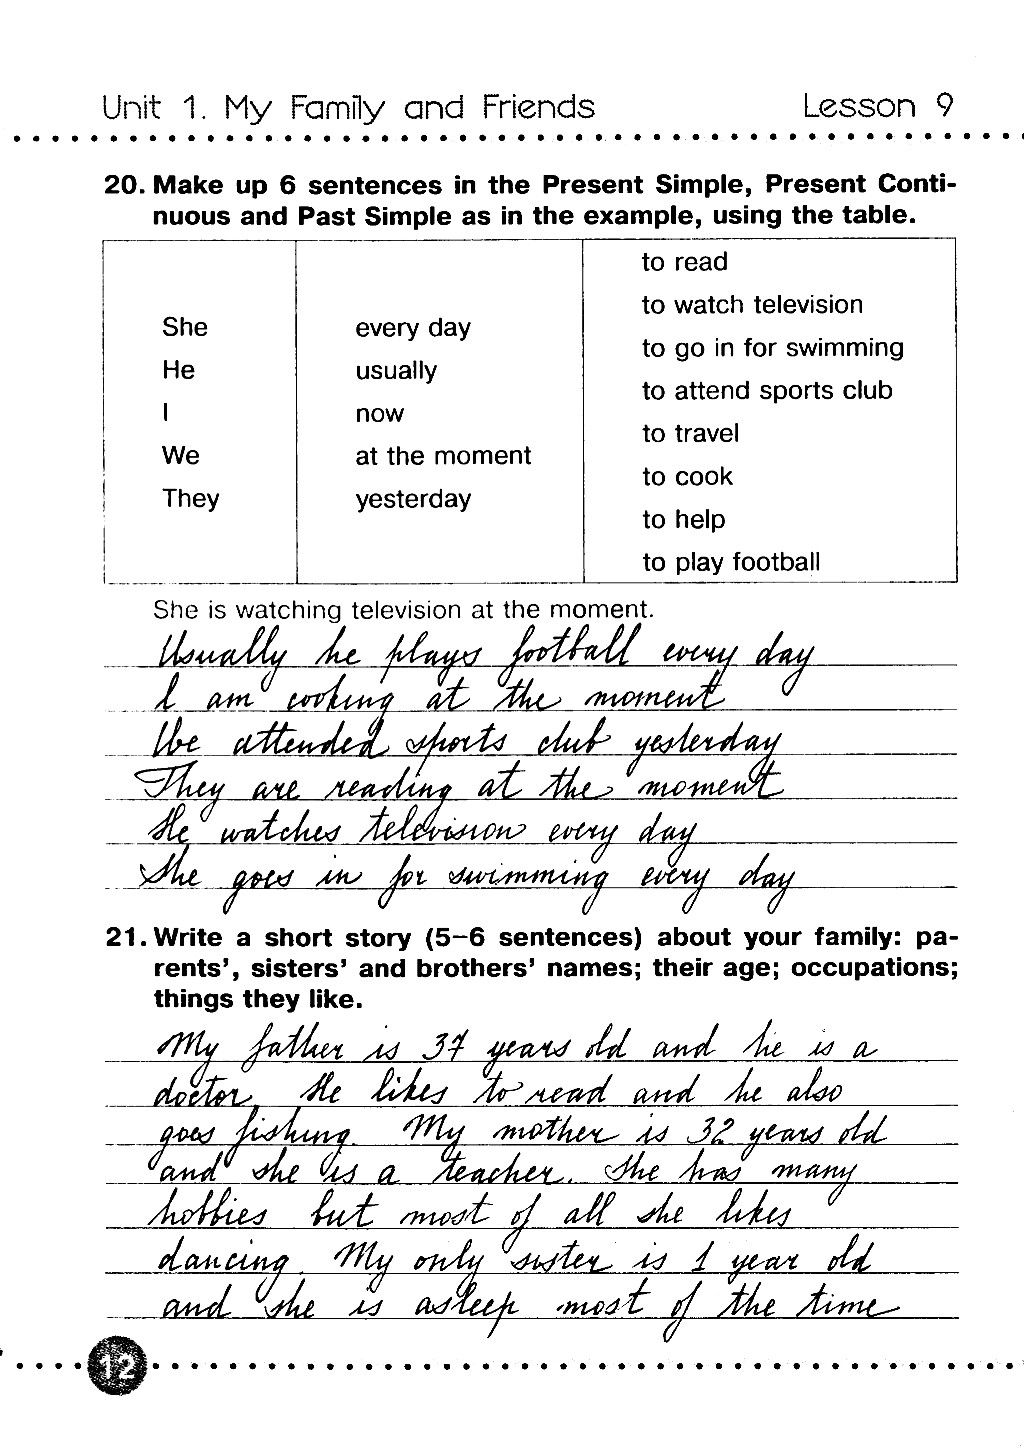 Unit 1. My Family and Friends Lesson 9
20. Make up 6 sentences in the Present Simple, Present Conti-
nuous and Past Simple as in the example, using the table.
She
He
I
We
They
every day
usually
now
at the moment
yesterday
to read
to watch television
to go in for swimming
to attend sports club
to travel
to cook
to help
to play football
She is watching television at the moment.
Usually he plays football every day
I am cooking at the moment
We attended sports club yesterday
They are reading at the moment
He watches television every day
She goes in for swimming every day
21. Write a short story (5–6 sentences) about your family: pa-
rents', sisters' and brothers' names; their age; occupations;
things they like.
My father is 37 years old and he is a
doctor. He likes to read and he also
goes fishing. My mother is 32 years old
and she is a teacher. She has many
hobbies but most of all she likes
dancing. My only sister is 1 year old
and she is asleep most of the time
12